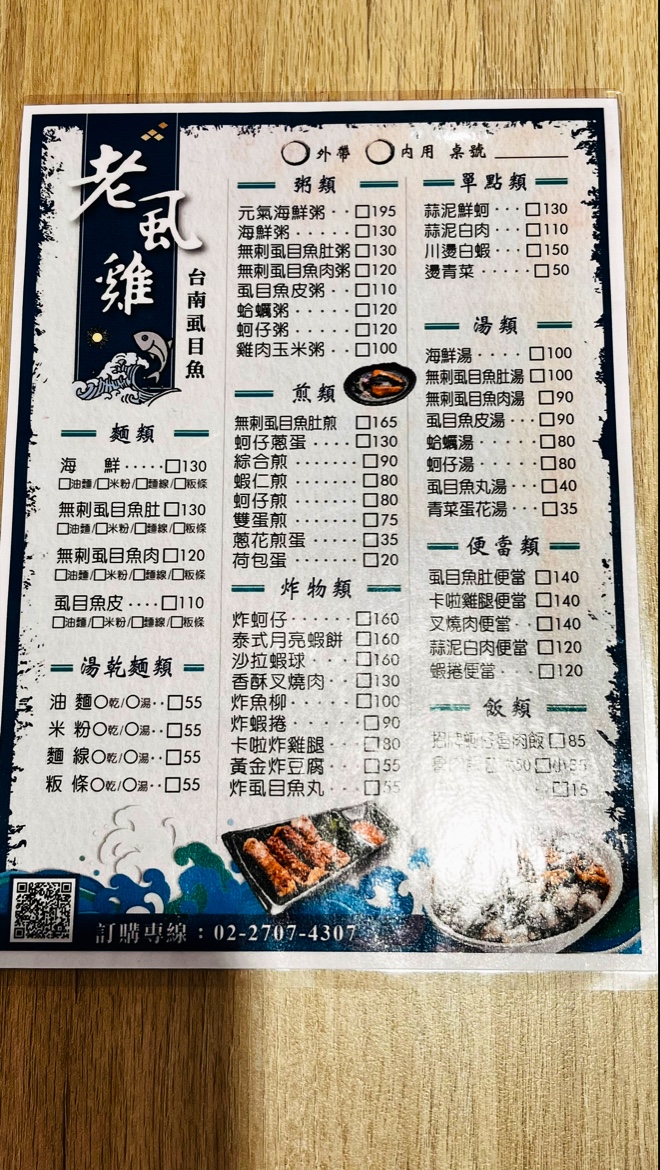 老虱雞
台南虱目魚
○外帶 ○內用 桌號
麵類
海 鮮·····□130
□油麵/□米粉/□麵線/□粄條
無刺虱目魚肚□130
□油麵/□米粉/□麵線/□粄條
無刺虱目魚肉□120
□油麵/□米粉/□麵線/□粄條
虱目魚皮····□110
□油麵/□米粉/□麵線/□粄條
湯乾麵類
油 麵○乾/○湯··□55
米 粉○乾/○湯··□55
麵 線○乾/○湯··□55
粄 條○乾/○湯··□55
粥類
元氣海鮮粥··□195
海鮮粥·····□130
無刺虱目魚肚粥□130
無刺虱目魚肉粥□120
虱目魚皮粥··□110
蛤蠣粥·····□120
蚵仔粥·····□120
雞肉玉米粥··□100
煎類
無刺虱目魚肚煎 □165
蚵仔蔥蛋····□130
綜合煎·······□90
蝦仁煎·······□80
蚵仔煎·······□80
雙蛋煎·······□75
蔥花煎蛋·····□35
荷包蛋·······□20
炸物類
炸蚵仔······□160
泰式月亮蝦餅 □160
沙拉蝦球····□160
香酥叉燒肉··□130
炸魚柳·····□100
炸蝦捲······□90
卡啦炸雞腿···□80
黃金炸豆腐···□55
炸虱目魚丸···□55
單點類
蒜泥鮮蚵···□130
蒜泥白肉···□110
川燙白蝦···□150
燙青菜·····□50
湯類
海鮮湯····□100
無刺虱目魚肚湯□100
無刺虱目魚肉湯 □90
虱目魚皮湯···□90
蛤蠣湯·····□80
蚵仔湯·····□80
虱目魚丸湯···□40
青菜蛋花湯···□35
便當類
虱目魚肚便當 □140
卡啦雞腿便當 □140
叉燒肉便當··□140
蒜泥白肉便當 □120
蝦捲便當···□120
飯類
招牌蚵仔魯肉飯□85
50□小35
□15
訂購專線：02-2707-4307